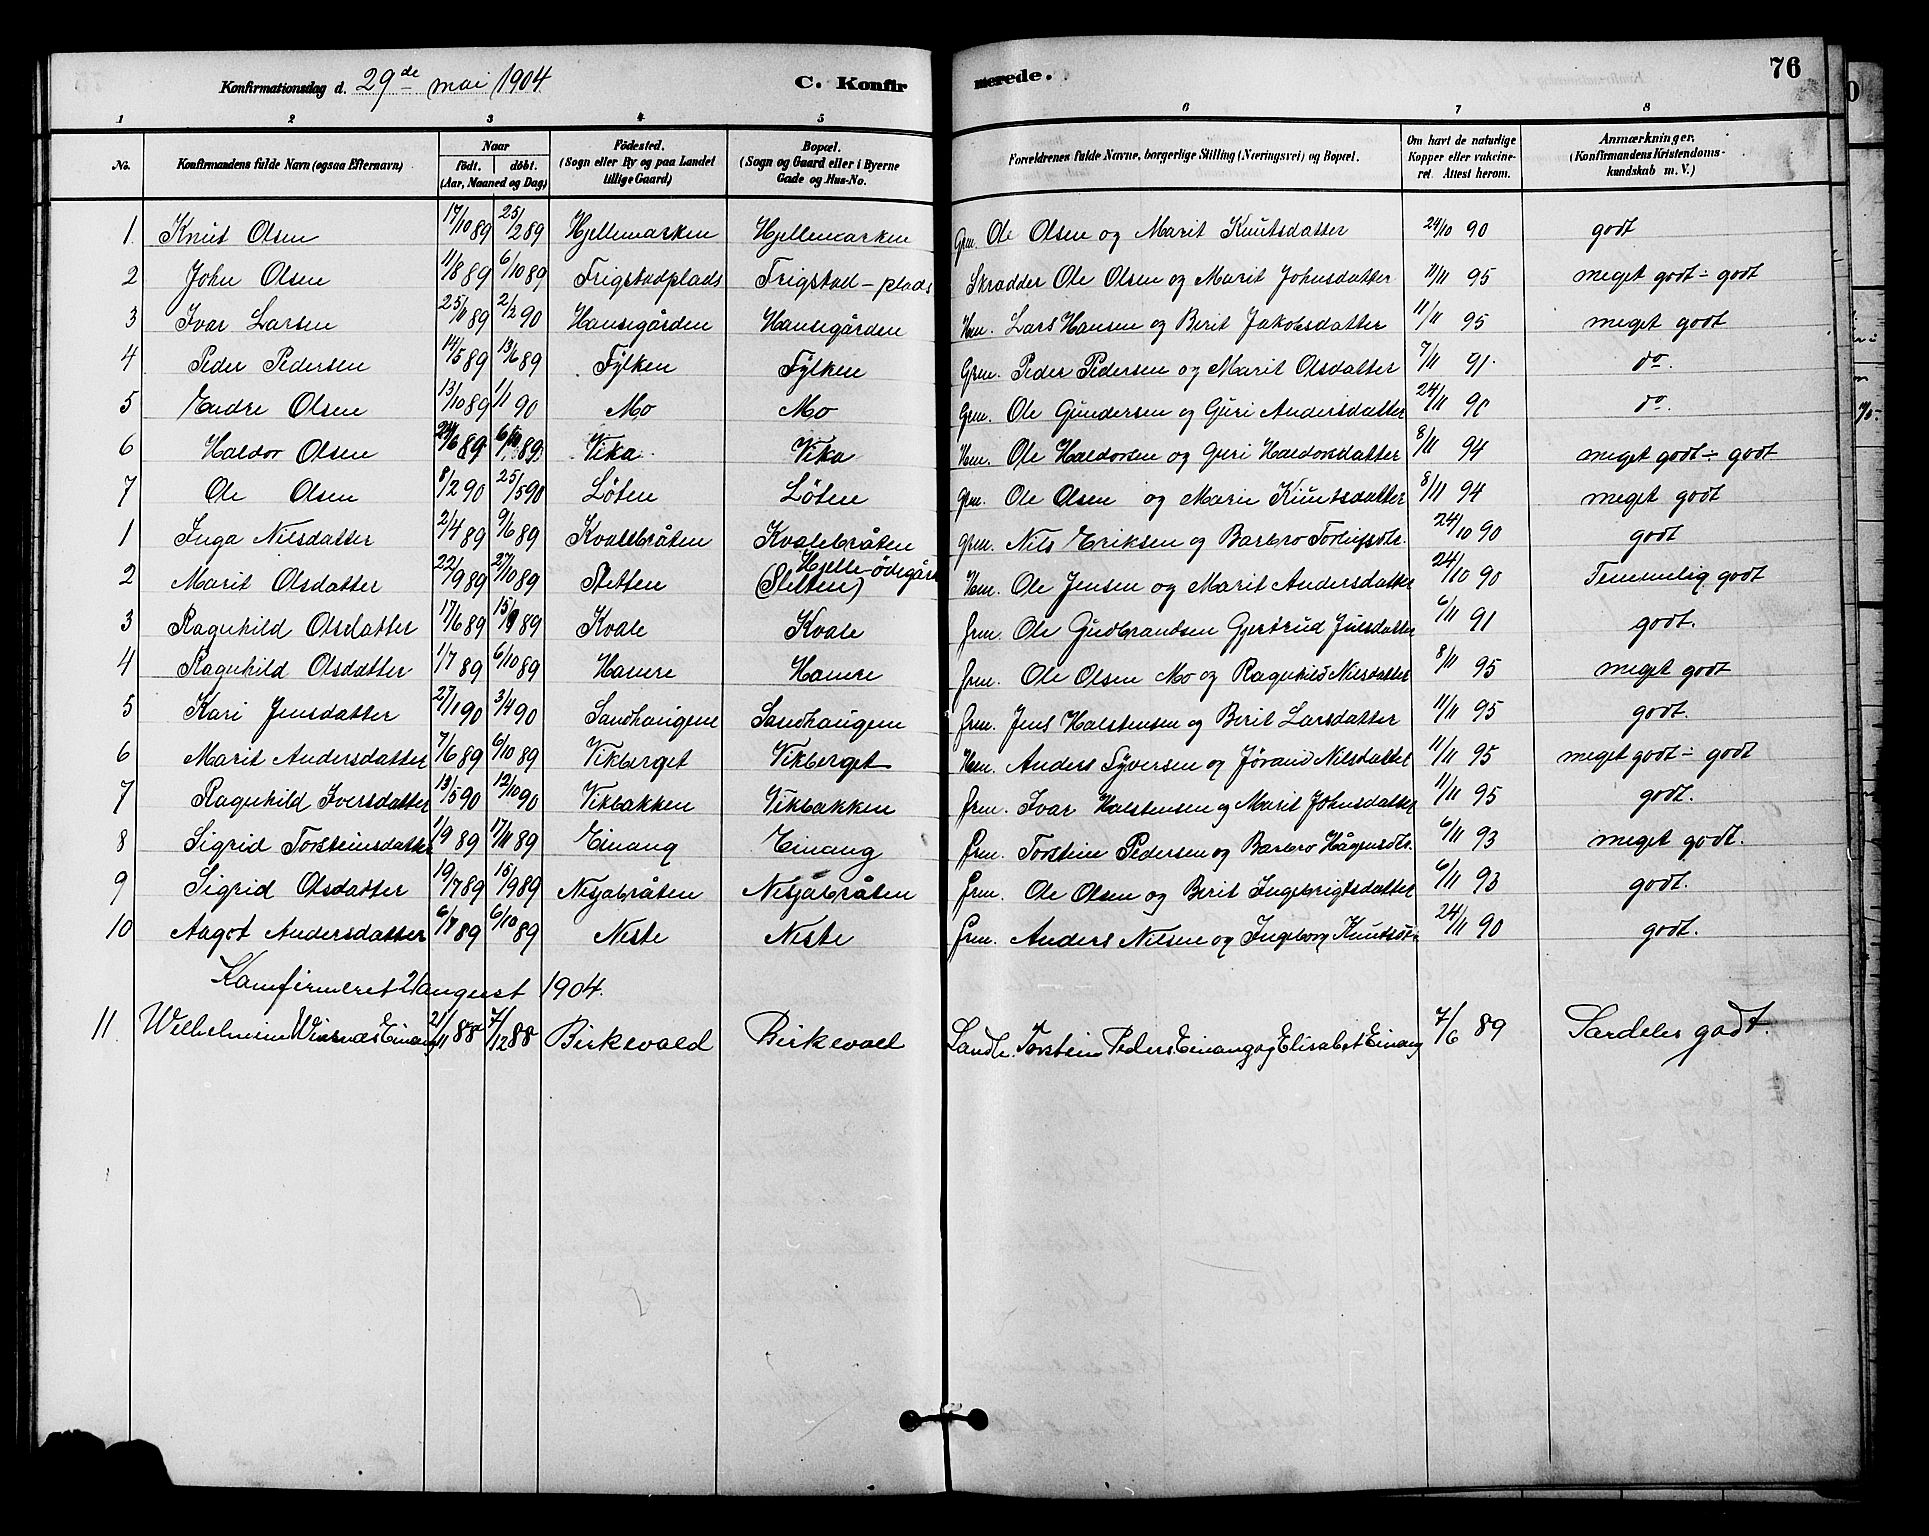 Konfirmationsdag d. 29de mai 1904 C. Konfirmerede. 76
1 2 3 4 5 6 7 8
No. Konfirmandens fulde Navn (ogsaa Efternavn) Naar födt. döbt. (Aar, Maaned og Dag) Födested. (Sogn eller By og paa Landet tillige Gaard) Bopæl. (Sogn og Gaard eller i Byerne Gade og Hus-No. Forældrenes fulde Navne, borgerlige Stilling (Næringsvei) og Bopæl. Om havt de naturlige Kopper eller vakcineret. Attest herom. Anmærkninger, (Konfirmandens Kristendomskundskab m. V.)
1. Knut Olsen 17/10 89 25/2 89 Hjellemarken Hjellemarken Grm. Ole Olsen og Marit Knutsdatter 24/10 90 godt
2 John Olsen 11/8 89 6/10 89 Frigstadplads Frigstad-plads Skrædder Ole Olsen og Marit Johnsdatter 11/11 95 meget godt ÷ godt
3 Ivar Larsen 25/11 89 2/2 90 Hansegården Hansegården Hm. Lars Hansen og Berit Jakobsdatter 11/11 95 meget godt
4 Peder Pedersen 14/5 89 13/6 89 Fylken Fylken Grm. Peder Pedersen og Marit Olsdatter 7/11 91. do.
5 Endre Olsen 13/10 89 1/1 90 Mo Mo Grm. Ole Gundersen og Guri Andersdatter 24/11 90 do.
6 Haldor Olsen 24/6 89 6/10 89 Vika Vika Hm. Ole Haldorsen og Guri Haldorsdatter 8/11 94 meget godt ÷ godt
7 Ole Olsen 8/2 90 25/5 90 Löten Löten Grm. Ole Olsen og Marie Knutsdatter 8/11 94 meget godt
1 Inga Nilsdatter 2/4 89 9/6 89 Kvalebråten Kvalebråten Grm. Nils Eriksen og Barbro Torleifsdtr. 24/10 90 godt
2 Marit Olsdatter 22/9 89 27/10 89 Sletten Hjelle-ödegård (Sletten) Hm. Ole Jensen og Marit Andersdatter 24/10 90 Temmelig godt
3 Ragnhild Olsdatter 17/6 89 15/9 89 Kvale Kvale Grm. Ole Gudbrandsen Gjertrud Julsdatter 6/11 91 godt.
4 Ragnhild Olsdatter 1/7 89 6/10 89 Hamre Hamre Grm. Ole Olsen Mo og Ragnhild Nilsdatter 8/11 95 meget godt
5 Kari Jensdatter 27/1 90 3/4 90 Sandhaugene Sandhaugene Grm. Jens Halstensen og Berit Larsdatter 11/11 95 godt.
6 Marit Andersdatter 7/6 89 6/10 89 Vikberget Vikberget Hm. Anders Syversen og Jörand Nilsdatter 11/11 95 meget godt ÷ godt
7 Ragnhild Iversdatter 13/5 90 12/10 90 Vikbakken Vikbakken Grm. Ivar Halstensen og Marit Johnsdatter 11/11 95 godt.
8 Sigrid Torsteinsdatter 1/9 89 17/11 89 Einang Einang Grm. Torstein Pedersen og Barbro Hågensdtr. 6/11 93 meget godt.
9 Sigrid Olsdatter 19/7 89 15/9 89 Nesjabråten Nesjabråten Grm. Ole Olsen og Berit Ingebrigtsdatter 6/11 93 godt.
10 Aagot Andersdatter 6/7 89 6/10 89 Neste Neste Grm. Anders Nilsen og Ingeborg Knutsdt. 24/11 90 godt.
Konfirmeret 21 august 1904.
11. Wilhelmine Einang 2/11 88 7/12 88 Birkevold Birkevold Landh. Torstein Peders Einang og Elisabet Einang 7/6 89 Særdeles godt.